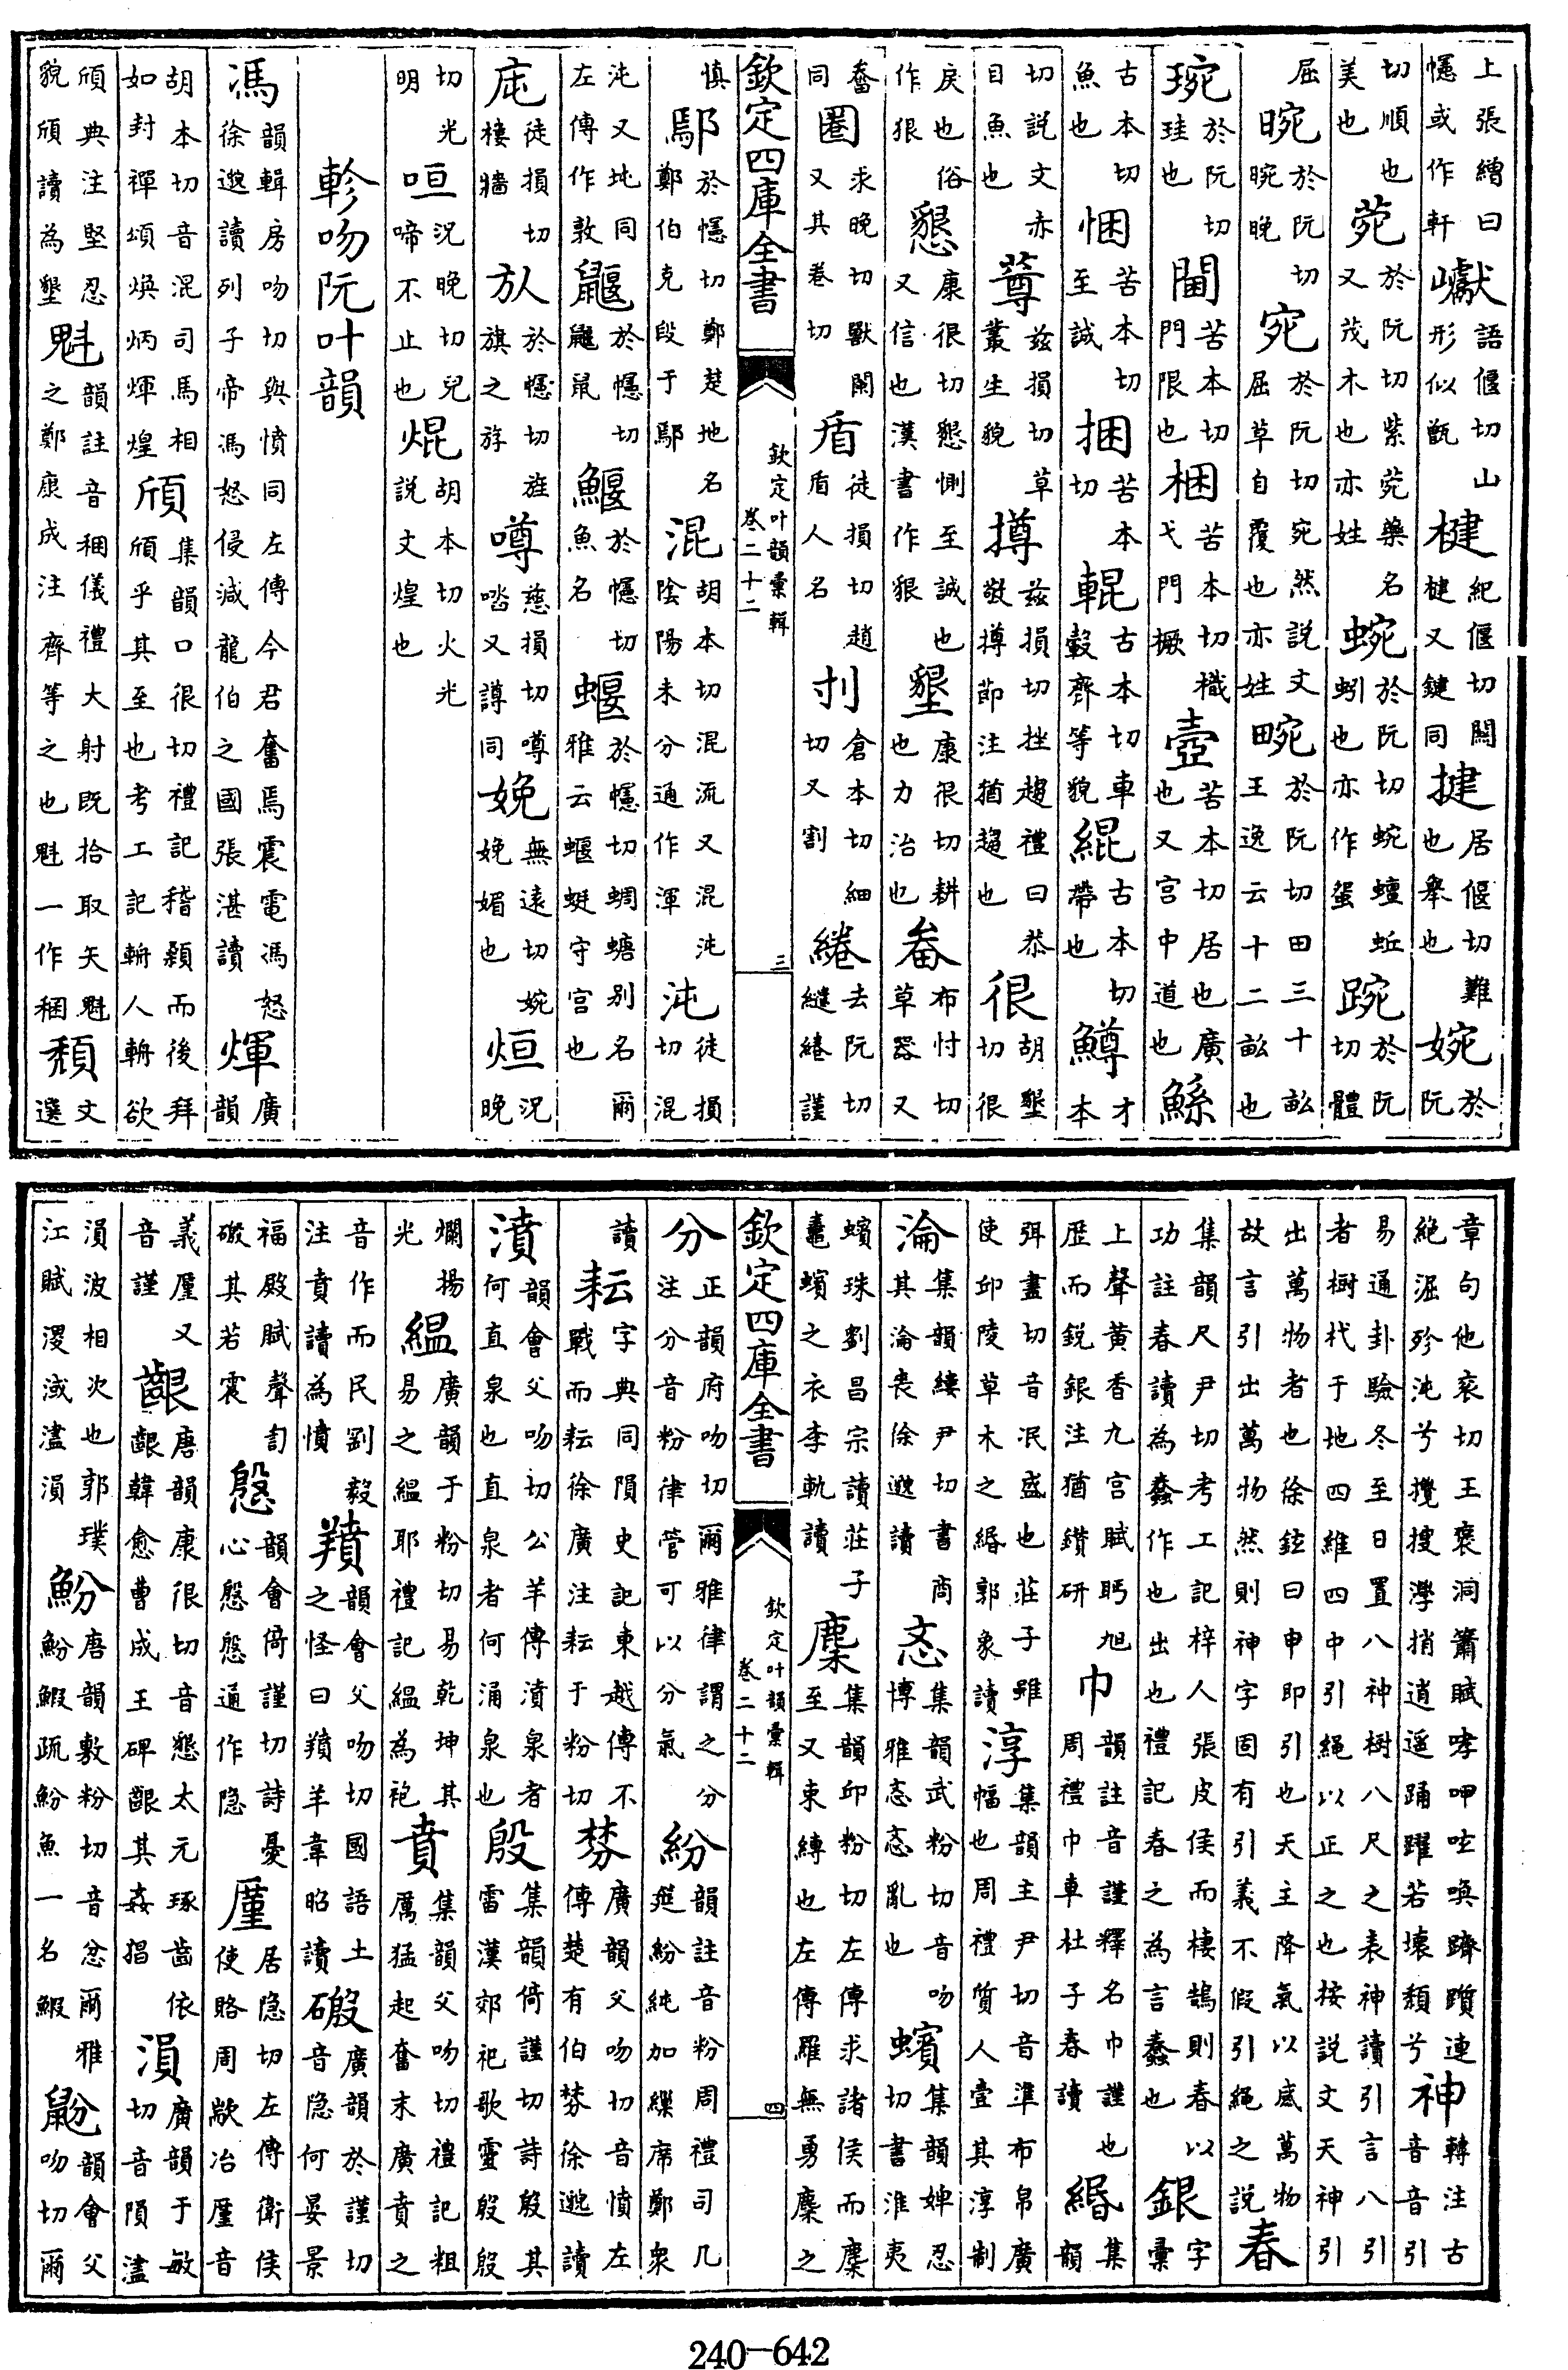 上張繒曰幰或作軒巘語偃切山形似甑楗紀偃切關楗又鍵同揵居偃切難也舉也婉於阮
切順也美也菀於阮切紫菀藥名又茂木也亦姓蜿於阮切蜿蟺蚯蚓也亦作蛩踠於阮切體
屈晼於阮切晼晚宛於阮切宛然說文屈草自覆也亦姓畹於阮切田三十畝王逸云十二畝也
琬於阮切珪也閫苦本切門限也梱苦本切橶弋門橛壼苦本切居也廣也又宮中道也鯀
古本切魚也悃苦本切至誠捆苦本切輥古本切車轂齊等貌緄古本切帶也鱒才本
切說文赤目魚也蓴茲損切草叢生貌撙茲損切挫趨禮曰恭敬撙節注猶趨也很胡墾切很
戾也俗作狠懇康很切懇惻至誠也又信也漢書作狠墾康很切耕也力治也畚布忖切草器又
畚同圈求晚切獸闌又其卷切盾徒損切趙盾人名刌倉本切細切又割綣去阮切繾綣謹
欽定四庫全書 欽定叶韻彙輯 卷二十二 三
慎鄢於幰切鄭楚地名鄭伯克段于鄢混胡本切混流又混沌陰陽未分通作渾沌徒損切混
沌又坉同左傳作敦鼴於幰切鼴鼠鰋於幰切魚名蝘於幰切蜩螗別名爾雅云蝘蜓守宮也
庉徒損切樓牆㫃於幰切旌旗之斿噂慈損切噂㗳又譐同娩無遠切婉娩媚也烜況晚
切光明咺況晚切兒啼不止也焜胡本切火光說文煌也
軫吻阮叶韻
馮韻輯房吻切與憤同左傳今君奮焉震電馮怒徐邈讀列子帝馮怒侵減龍伯之國張湛讀煇廣韻
胡本切音混司馬相如封禪頌煥炳煇煌頎集韻口很切禮記稽顙而後拜頎乎其至也考工記輈人輈欲
頎典注堅忍貌頎讀為墾魁韻註音稛儀禮大射既拾取矢魁之鄭康成注齊等之也魁一作稛頹文選
章句他袞切王褒洞簫賦哮呷呟喚躋躓連絕淈殄沌兮攪搜㶅捎逍遥踊躍若壞頹兮神轉注古音音引
易通卦驗冬至日置八神樹八尺之表神讀引言八引者樹杙于地四維四中引繩以正之也按說文天神引
出萬物者也徐鉉曰申即引也天主降氣以感萬物故言引出萬物然則神字固有引義不假引繩之說春
集韻尺尹切考工記梓人張皮侯而棲鵠則春以功註春讀為蠢作也出也禮記春之為言蠢也銀字彙
上聲黃香九宮賦眄旭歷而銳銀注猶鑽研巾韻註音謹釋名巾謹也周禮巾車杜子春讀緡集韻
弭盡切音泯盛也莊子雖使邱陵草木之緡郭象讀淳集韻主尹切音準布帛廣幅也周禮質人壹其淳制
淪集韻縷尹切書商其淪喪徐邈讀忞集韻武粉切音吻博雅忞忞亂也蠙集韻婢忍切書淮夷
蠙珠劉昌宗讀莊子鼃蠙之衣李軌讀麇集韻邱粉切左傳求諸侯而麇至又束縛也左傳羅無勇麇之
欽定四庫全書 欽定叶韻彙輯 卷二十二 四
分正韻府吻切爾雅律謂之分注分音粉律管可以分氣紛韻註音粉周禮司几筵紛純加繅席鄭衆
讀耘字典同隕史記東越傳不戰而耘徐廣注耘于粉切棼廣韻父吻切音憤左傳楚有伯棼徐邈讀
濆韻會父吻切公羊傳濆泉者何直泉也直泉者何涌泉也殷集韻倚謹切詩殷其雷漢郊祀歌靈殷殷
爛揚光縕廣韻于粉切易乾坤其易之縕耶禮記縕為袍賁集韻父吻切禮記粗厲猛起奮末廣賁之
音作而民剛毅注賁讀為憤羵韻會父吻切國語土之怪曰羵羊韋昭讀磤廣韻於謹切音隱何晏景
福殿賦聲訇磤其若震慇韻會倚謹切詩憂心慇慇通作隱厪居隱切左傳衛侯使賂周歂冶厪音
義厪又音謹齦唐韻康很切音懇太元琢齒依齦韓愈曹成王碑齦其姦猖溳廣韻于敏切音隕濜
溳波相次也郭璞江賦㵍淢濜溳魵唐韻敷粉切音忿爾雅魵鰕疏魵魚一名鰕鼢韻會父吻切爾
240-642